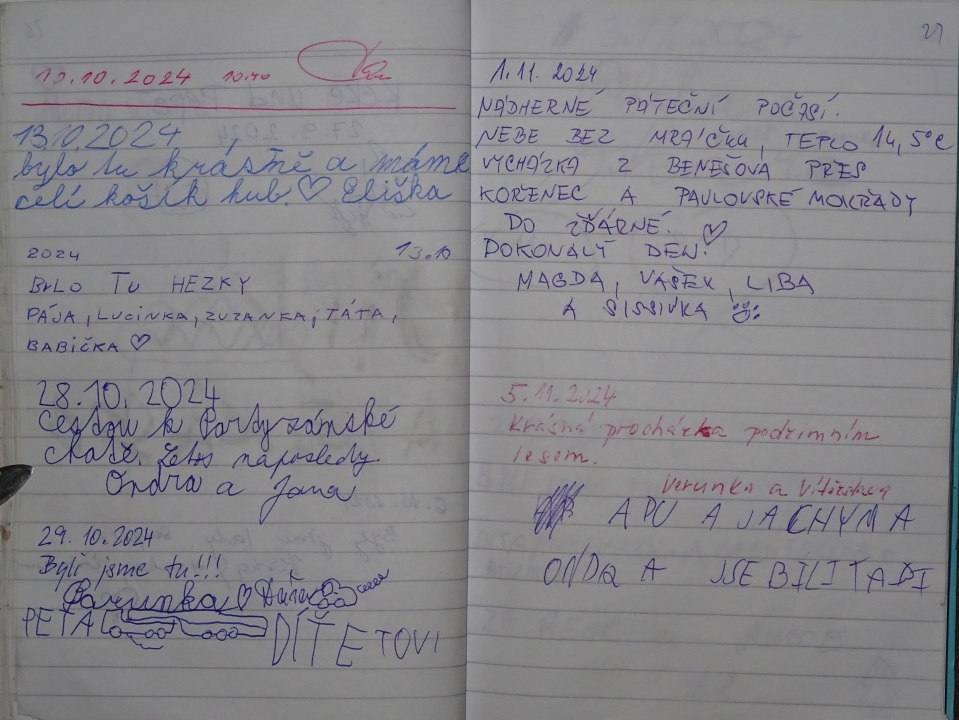 13.10.2024 10:40
13.10.2024
bylo tu krásně a máme
celí košík hub. ♡ Eliška
2024 13.10
BYLO TU HEZKY
PÁJA, LUCINKA, ZUZANKA, TÁTA,
BABIČKA ♡
28.10.2024
Cestou k Partyzánské
chatě. Letos naposledy.
Ondra a Jana
29.10.2024
Byli jsme tu!!!
Barunka ♡
PEŤA DÍTĚTOVI
27
1.11.2024
NÁDHERNÉ PÁTEČNÍ POČASÍ.
NEBE BEZ MRÁČKU, TEPLO 14,5°C
VYCHÁZKA Z BENEŠOVA PŘES
KOŘENEC A PAVLOVSKÉ MOKŘADY
DO ŽĎÁRNÉ. ♡
DOKONALÝ DEN.
MAGDA, VAŠEK, LIBA
A SISSINKA
5.11.2024
Krásná procházka podzimním
lesem.
Verunka a
A PU A JACHYM A
ONDRA JSE BILI TADI